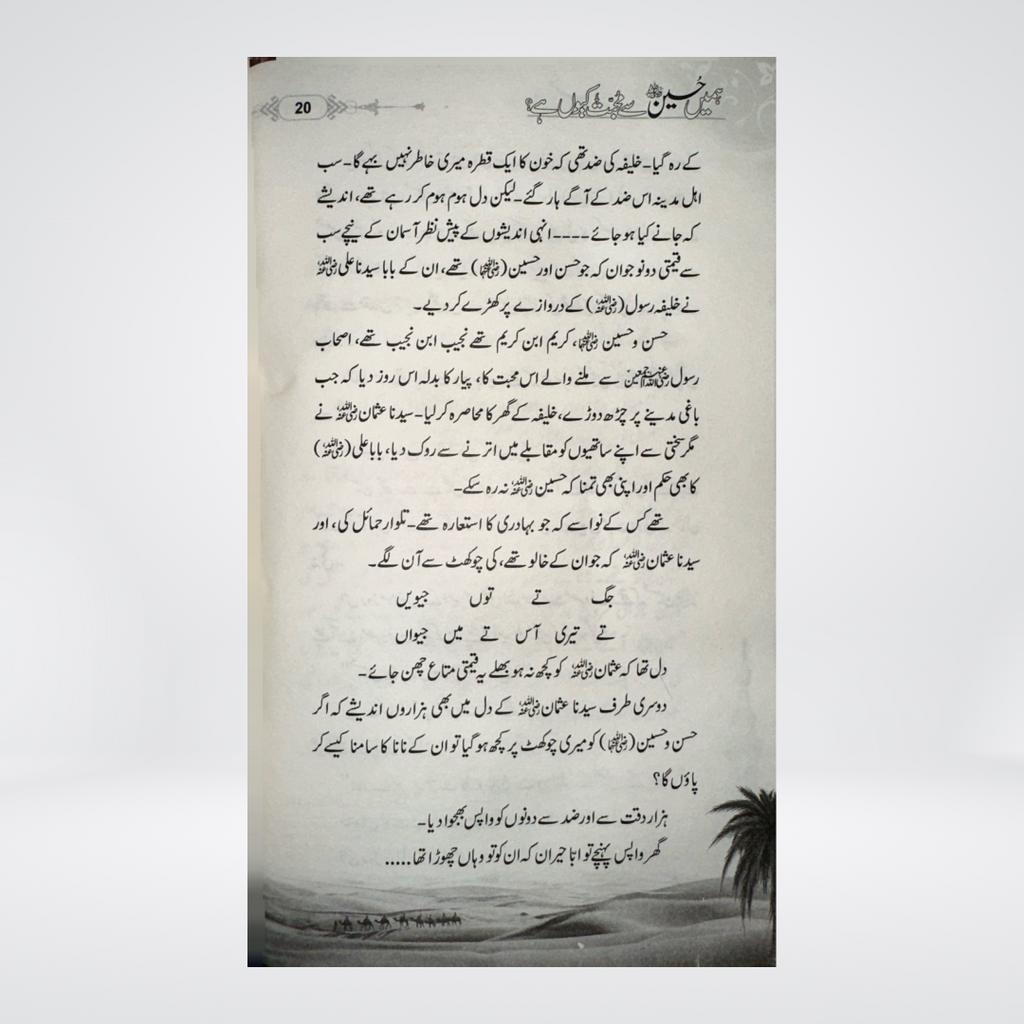 ہمیں حسینؓ سے محبت کیوں ہے؟
20
کے رہ گیا۔ خلیفہ کی ضد تھی کہ خون کا ایک قطرہ میری خاطر نہیں بہے گا۔ سب
اہل مدینہ اس ضد کے آگے ہار گئے۔ لیکن دل ہوم ہوم کر رہے تھے، اندیشے
کہ جانے کیا ہو جائے ---- انہی اندیشوں کے پیش نظر آسمان کے نیچے سب
سے قیمتی دو نوجوان کہ جو حسن اور حسین (رضی اللہ عنہما) تھے، ان کے بابا سیدنا علی رضی اللہ عنہ
نے خلیفہ رسول (رضی اللہ عنہ) کے دروازے پر کھڑے کر دیے۔
حسن و حسین رضی اللہ عنہما، کریم ابن کریم تھے نجیب ابن نجیب تھے، اصحاب
رسول رضی اللہ عنہم اجمعین سے ملنے والے اس محبت کا، پیار کا بدلہ اس روز دیا کہ جب
باغی مدینے پر چڑھ دوڑے، خلیفہ کے گھر کا محاصرہ کر لیا۔ سیدنا عثمان رضی اللہ عنہ نے
مگر سختی سے اپنے ساتھیوں کو مقابلے میں اترنے سے روک دیا، بابا علی (رضی اللہ عنہ)
کا بھی حکم اور اپنی بھی تمنا کہ حسین رضی اللہ عنہ نہ رہ سکے۔
تھے کس کے نواسے کہ جو بہادری کا استعارہ تھے۔ تلوار حمائل کی، اور
سیدنا عثمان رضی اللہ عنہ کہ جو ان کے خالو تھے، کی چوکھٹ سے آن لگے۔
جگ تے توں جیویں
تے تیری آس تے میں جیواں
دل تھا کہ عثمان رضی اللہ عنہ کو کچھ نہ ہو بھلے یہ قیمتی متاع چھن جائے۔
دوسری طرف سیدنا عثمان رضی اللہ عنہ کے دل میں بھی ہزاروں اندیشے کہ اگر
حسن و حسین (رضی اللہ عنہما) کو میری چوکھٹ پر کچھ ہو گیا تو ان کے نانا کا سامنا کیسے کر
پاؤں گا؟
ہزار دقت سے اور ضد سے دونوں کو واپس بھجوا دیا۔
گھر واپس پہنچے تو ابا حیران کہ ان کو تو وہاں چھوڑا تھا.....